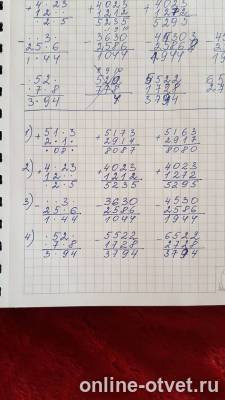 + 4·23 + 4023 + 4023
12·· 1212 1272
··2·5 5235 5295
- ··3· 3630 4530
25·6 2586 2586
1·44 1044 1944
- ·52· 5522
·7·8 1798
3·94 3794
1) + 51·3 + 5173 + 5163
2·1· 2914 2917
·08· 8087 8080
2) + 4·23 + 4023 + 4023
12·· 1212 1272
··2·5 5235 5295
3) - ··3· - 3630 - 4530
25·6 2586 2586
1·44 1044 1944
4) - ·52· - 5522 - 6522
·7·8 1728 2728
3·94 3794 3794
online-otvet.ru